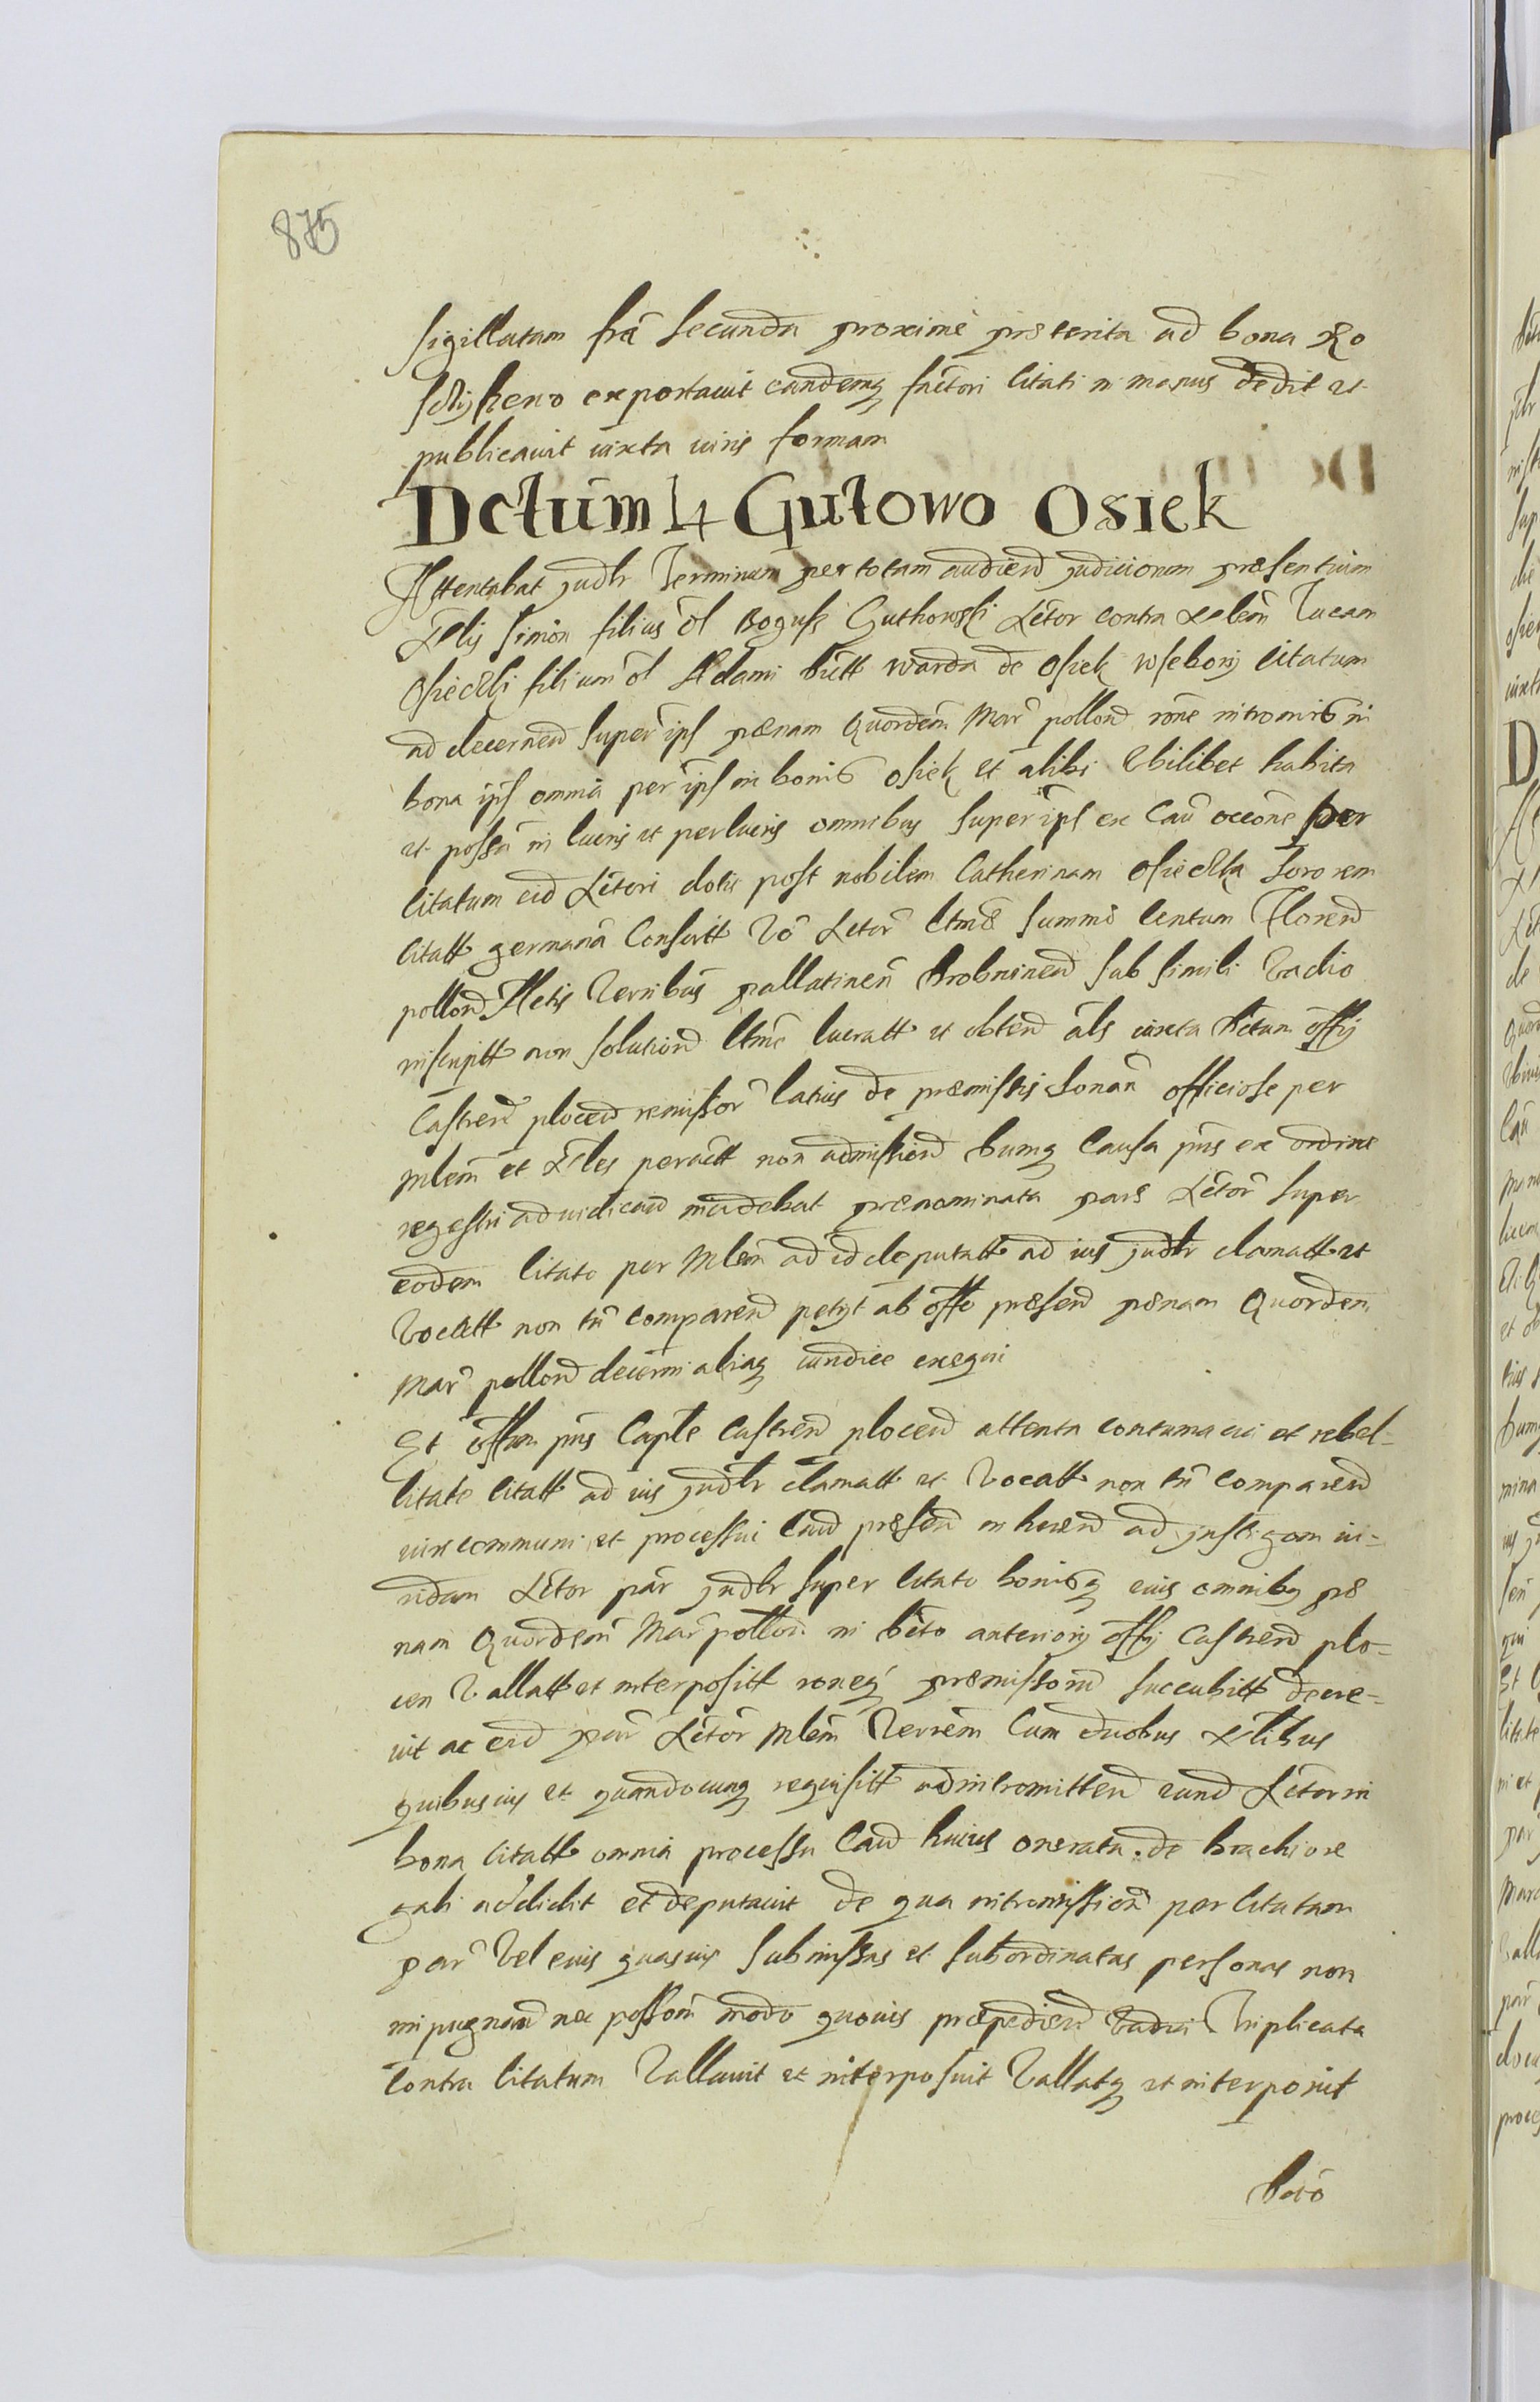 875
sigillatam frã secunda proxime præterita ad bona
exportavit eandemq factori citati in manus dedit et
publicavit iuxta iuris formam
Dctum 4 Gutowo Osiek
Attentabat judlr Terminum per totam audiend judiciorum præsentium
simon filius ol Boguss Guthowski Actor contra Lucam
Osiecki filium ol Adami de Osiek citatum
ad decernend super ips pœnam Quordem Mar pollond rone intromiss in
bona ips omnia per ips in bonis Osiek et alibi Vbilibet habita
et possa in lucris et perlucris omnibus super ips ex Cau occone per
citatum eid Actori dotis post nobilem Catherinam Osiecka sororem
citatt germana Consortt Vo Actor ltme summe Centum Floren
pollond Actis Terribus pallatinen sub simili Vadio
inscriptt non solution ltme lucratt et obtend als iuxta offij
Castren plocen remissor latius de præmissis sonan officiose per
Mlem et peractt non admission Cumq Causa pns ex ordine
regestri adiudicand incidebat prænominata pars Actor super
eodem citato per Mlem ad id deputatt ad ius judlr clamatt et
Vocatt non tn comparend petyt ab offo præsend pœnam Quorden
Mar pollond decerni aliaq iuridice exequi
Et offm pns Caplle Castren plocen attenta contumacia et rebel-
litate citatt ad ius judlr clamatt et Vocatt non tn comparend
iure communi et processui Caud præsend inherend ad instigam iu-
ridam Actor par judlr super citato bonisq eius omnibq pœ
nam Quordem Mar pollon in anterioris offij Castrend plo-
cen Vallatt et interpositt roneq præmissorum succubitt decre-
uit ac eid par Actor Mlem Terrem Cum duobus
quibusuis et quandocunq requisitt ad intromittend eund Actor in
bona citatt omnia processu Caud huius onerata de brachio re
gali addidit et deputavit de qua intromission per citatam
par Vel eius quasuis submissas et subordinatas personas non
impugnand nec possom modo quovis præpediend Vadia Triplicata
Contra citatum Vallavit et interposuit Vallatq et interponit